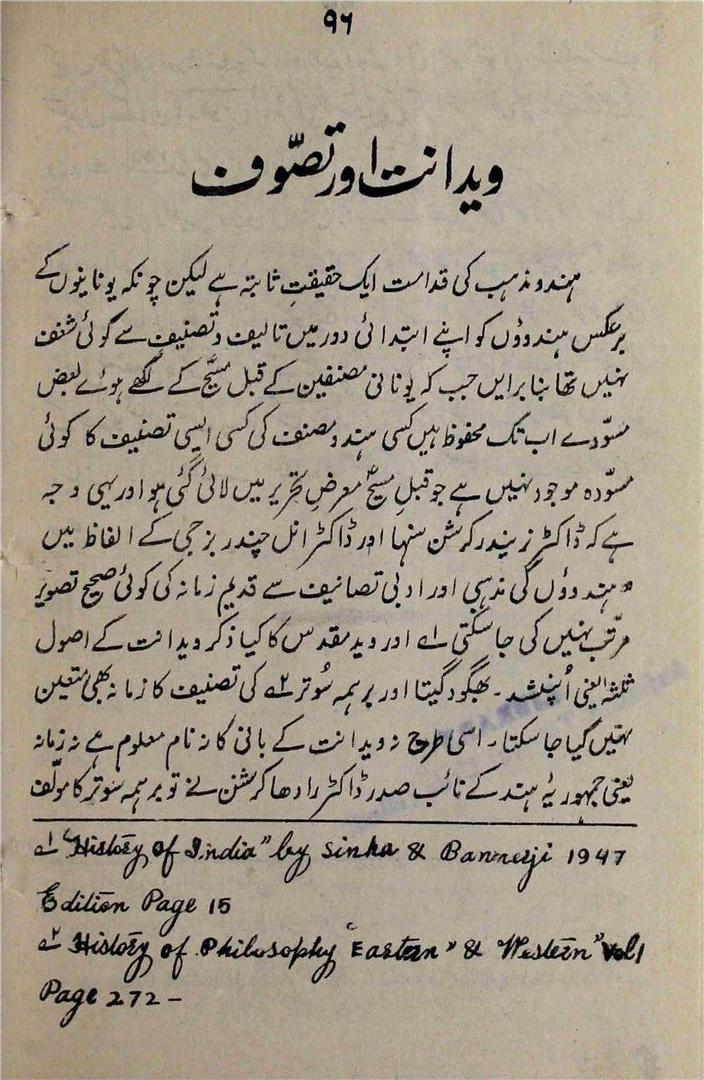 ۹۶
ویدانت اور تصوّف
ہندو مذہب کی قدامت ایک حقیقتِ ثابتہ ہے لیکن چونکہ یونانیوں کے
برعکس ہندوؤں کو اپنے ابتدائی دور میں تالیف و تصنیف سے کوئی شغف
نہیں تھا بنا برایں جب کہ یونانی مصنفین کے قبل مسیحؑ کے لکھے ہوئے بعض
مسوّدے اب تک محفوظ ہیں کسی ہندو مصنف کی کسی ایسی تصنیف کا کوئی
مسوّدہ موجود نہیں ہے جو قبلِ مسیحؑ معرضِ تحریر میں لائی گئی ہو اور یہی وجہ
ہے کہ ڈاکٹر نریندر کرشن سنہا اور ڈاکٹر انل چندر بنرجی کے الفاظ میں
" ہندوؤں کی مذہبی اور ادبی تصانیف سے قدیم زمانہ کی کوئی صحیح تصویر
مرتّب نہیں کی جا سکتی ۱؎ اور وید مقدس کا کیا ذکر ویدانت کے اصول
ثلثہ یعنی اُپنشد ۔ بھگود گیتا اور برہمہ سُوتر ۲؎ کی تصنیف کا زمانہ بھی متعین
نہیں کیا جا سکتا ۔ اسی طرح نہ ویدانت کے بانی کا نہ نام معلوم ہے نہ زمانہ
یعنی جمہوریۂ ہند کے نائب صدر ڈاکٹر رادھا کرشنن نے تو برہمہ سوتر کا مولّف
۱؎ "History of India" by Sinha & Bannerji 1947
Edition Page 15
۲؎ History of Philosophy "Eastern" & Western" Vol 1
Page 272 –